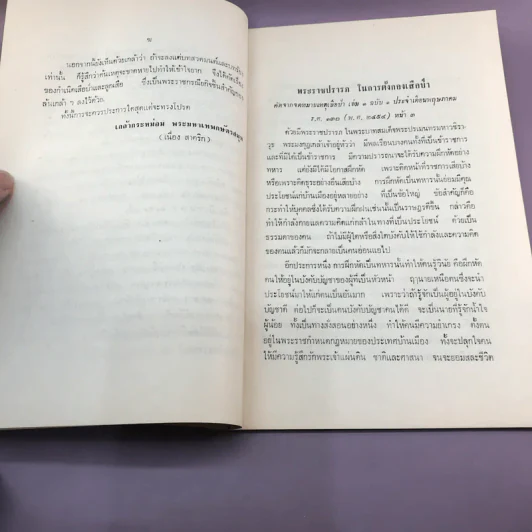 ข
นอกจากนี้ยังเห็นด้วยเกล้าว่า ถ้าจะลงแต่บทละคร
เท่านั้น ก็รู้สึกว่าต้นเหตุจะขาดหายไปทำให้เข้าใจยาก จึงได้
ของกำเนิดเสือป่าและลูกเสือ ซึ่งเป็นพระราชกรณียกิจอันสำคัญ
ล้นเกล้า ฯ ลงไว้ด้วย.
ทั้งนี้การจะควรประการใดสุดแต่จะทรงโปรด
เกล้ากระหม่อม พระมหาเทพกษัตรสมุห
(เนื่อง สาคริก)
พระราชปรารภ ในการตั้งกองเสือป่า
คัดจากจดหมายเหตุเสือป่า เล่ม ๑ ฉบับ ๑ ประจำเดือนพฤษภาคม
ร.ศ. ๑๓๐ (พ.ศ. ๒๔๕๔) หน้า ๓
ด้วยมีพระราชปรารภ ในพระบาทสมเด็จพระปรเมนทรมหาวชิรา-
วุธ พระมงกุฎเกล้าเจ้าอยู่หัวว่า มีพลเรือนบางคนทั้งที่เป็นข้าราชการ
และที่มิได้เป็นข้าราชการ มีความปรารถนาจะได้รับความฝึกหัดอย่าง
ทหาร แต่ยังมิได้มีโอกาสฝึกหัด เพราะติดหน้าที่ราชการเสียบ้าง
หรือเพราะติดธุระอย่างอื่นเสียบ้าง การฝึกหัดเป็นทหารนั้นย่อมมีคุณ
ประโยชน์แก่บ้านเมืองอยู่หลายอย่าง ที่เป็นข้อใหญ่ ข้อสำคัญก็คือ
กระทำให้บุคคลซึ่งได้รับความฝึกฝนเช่นนั้นเป็นราษฎรดีขึ้น กล่าวคือ
ทำให้กำลังกายและความคิดแก่กล้าในทางที่เป็นประโยชน์ ด้วยเป็น
ธรรมดาของคน ถ้าไม่มีผู้ใดหรือสิ่งใดบังคับให้ใช้กำลังและความคิด
ของตนแล้วก็มักจะกลายเป็นคนอ่อนแอไป
อีกประการหนึ่ง การฝึกหัดเป็นทหารนั้นทำให้คนรู้วินัย คือฝึกหัด
คนให้อยู่ในบังคับบัญชาของผู้ที่เป็นหัวหน้า ฤๅนายเหนือตนซึ่งจะนำ
ประโยชน์มาให้แก่ตนเป็นอันมาก เพราะว่าถ้ารู้จักเป็นผู้อยู่ในบังคับ
บัญชาดี ต่อไปก็จะเป็นคนบังคับบัญชาคนได้ดี จะเป็นนายที่รู้จักน้ำใจ
ผู้น้อย ทั้งเป็นทางสั่งสอนอย่างหนึ่ง ทำให้คนมีความยำเกรง ตั้งตน
อยู่ในพระราชกำหนดกฎหมายของประเทศบ้านเมือง ทั้งจะปลุกใจคน
ให้มีความรู้สึกรักพระเจ้าแผ่นดิน ชาติและศาสนา จนจะยอมสละชีวิต